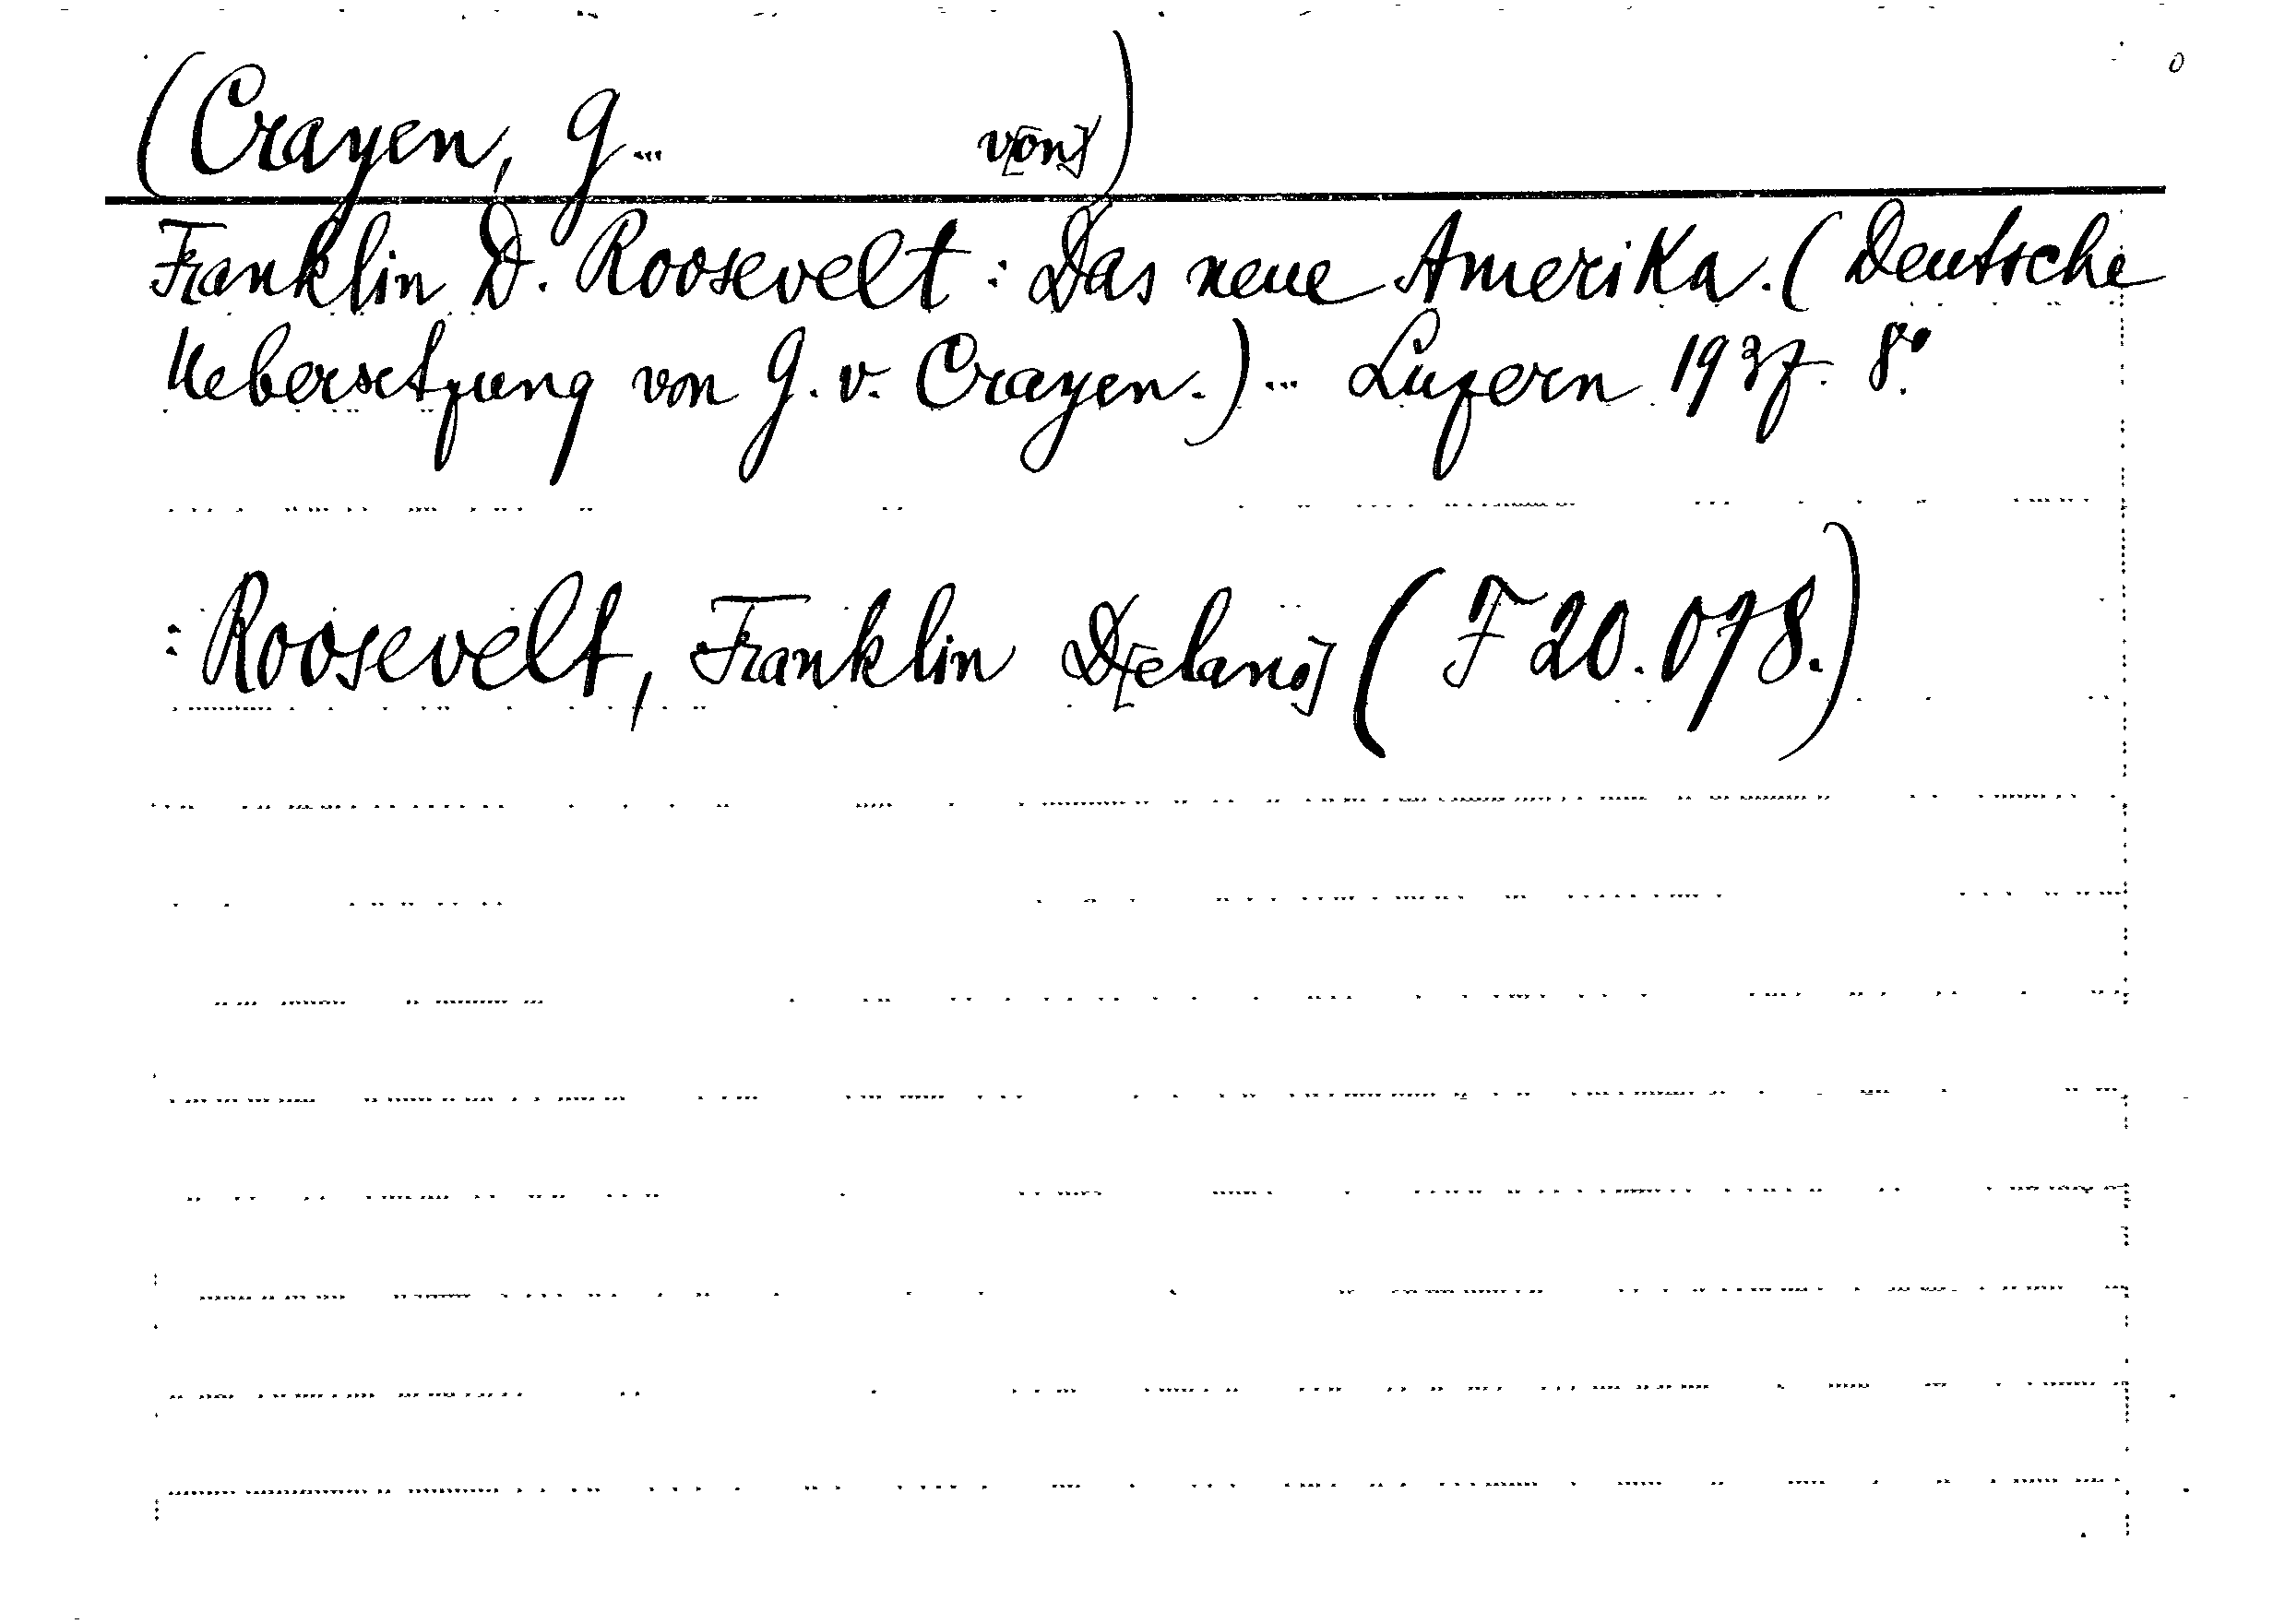 (Crayen, G... v[on])
Franklin D. Roosevelt: Das neue Amerika. (Deutsche
Uebersetzung von G. v. Crayen.)... Luzern 1937. 8°.
: Roosevelt, Franklin D[elano] (F 20.078.)